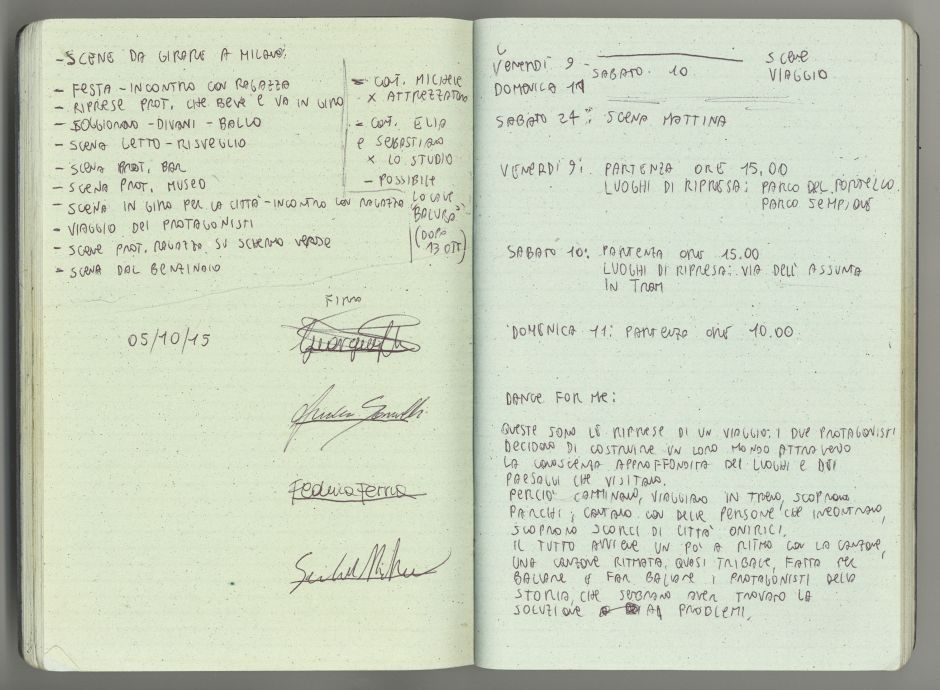 - SCENE DA GIRARE A MILANO:
- FESTA - INCONTRO CON RAGAZZA
- RIPRESE PROT. CHE BEVE E VA IN GIRO
- SOGGIORNO - DIVANI - BALLO
- SCENA LETTO - RISVEGLIO
- SCENA PROT. BAR
- SCENA PROT. MUSEO
- SCENA IN GIRO PER LA CITTÀ - INCONTRO CON RAGAZZO
- VIAGGIO DEI PROTAGONISTI
- SCENE PROT. RAGAZZO SU SCHERMO VERDE
- SCENA DAL BENZINAIO
- CONT. MICHELE
X ATTREZZATURA
- CONT. ELIA
E SEBASTIANO
X LO STUDIO
- POSSIBILE
LOCALE
(DOPO
13 OTT)
05/10/15
FIRMA
Federica Ferro
VENERDÌ 9 - SABATO 10
DOMENICA 11
SCENE
VIAGGIO
SABATO 24: SCENA MATTINA
VENERDÌ 9: PARTENZA ORE 15,00
LUOGHI DI RIPRESA: PARCO DEL PORTELLO
PARCO SEMPIONE
SABATO 10: PARTENZA ORE 15.00
LUOGHI DI RIPRESA: VIA DELL'ASSUNTA
IN TRAM
DOMENICA 11: PARTENZA ORE 10.00
DANCE FOR ME:
QUESTE SONO LE RIPRESE DI UN VIAGGIO: I DUE PROTAGONISTI
DECIDONO DI COSTRUIRE UN LORO MONDO ATTRAVERSO
LA CONOSCENZA APPROFFONDITA DEI LUOGHI E DEI
PAESAGGI CHE VISITANO.
PERCIÒ CAMMINANO, VIAGGIANO IN TRENO, SCOPRONO
PARCHI, CANTANO CON DELLE PERSONE CHE INCONTRANO,
SCOPRONO SCORCI DI CITTÀ ONIRICI.
IL TUTTO AVVIENE UN PO' A RITMO CON LA CANZONE,
UNA CANZONE RITMATA, QUASI TRIBALE, FATTA PER
BALLARE E FAR BALLARE I PROTAGONISTI DELLA
STORIA, CHE SEMBRANO AVER TROVATO LA
SOLUZIONE AI PROBLEMI.